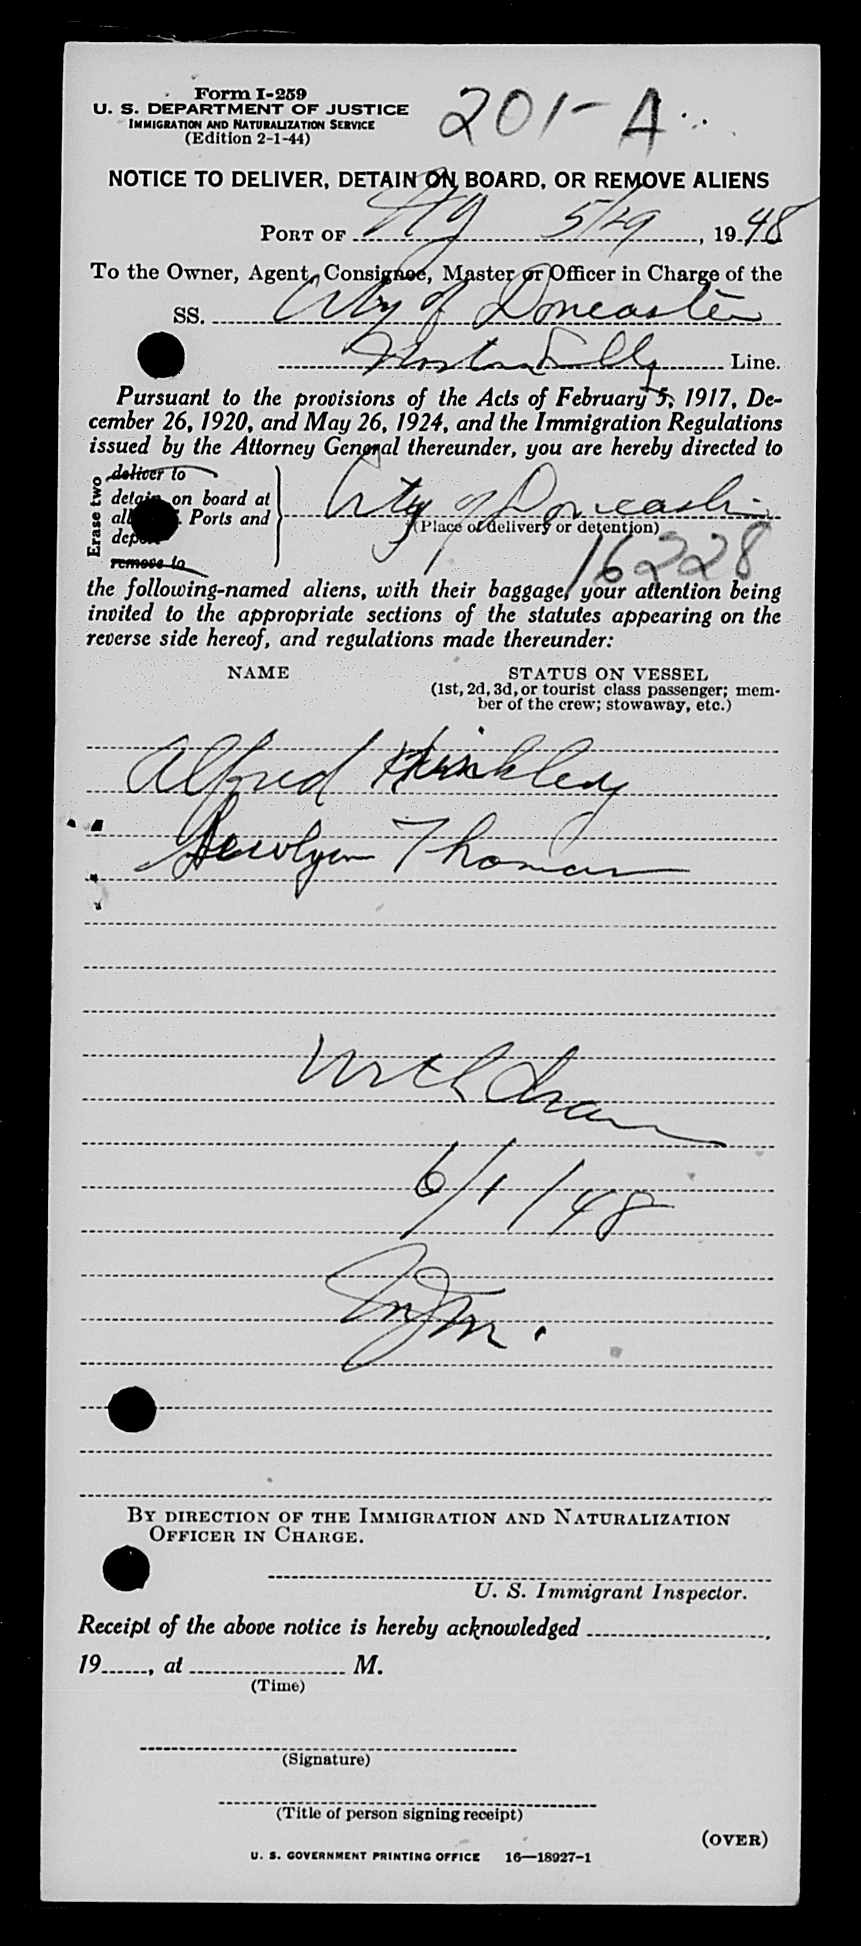 Form I-259
U. S. DEPARTMENT OF JUSTICE
IMMIGRATION AND NATURALIZATION SERVICE
(Edition 2-1-44)
201-A
NOTICE TO DELIVER, DETAIN ON BOARD, OR REMOVE ALIENS
PORT OF NY 5/29, 1948
To the Owner, Agent, Consignee, Master or Officer in Charge of the
SS. City of Doncaster
Norton Lilly Line.
Pursuant to the provisions of the Acts of February 5, 1917, De-
cember 26, 1920, and May 26, 1924, and the Immigration Regulations
issued by the Attorney General thereunder, you are hereby directed to
Erase two
deliver to
detain on board at
all Ports and
remove to
City of Doncaster
(Place of delivery or detention)
16228
the following-named aliens, with their baggage, your attention being
invited to the appropriate sections of the statutes appearing on the
reverse side hereof, and regulations made thereunder:
NAME STATUS ON VESSEL
(1st, 2d, 3d, or tourist class passenger; mem-
ber of the crew; stowaway, etc.)
Alfred Hinkley
Thomas
6/1/48
BY DIRECTION OF THE IMMIGRATION AND NATURALIZATION
OFFICER IN CHARGE.
U. S. Immigrant Inspector.
Receipt of the above notice is hereby acknowledged
19, at M.
(Time)
(Signature)
(Title of person signing receipt)
(OVER)
U. S. GOVERNMENT PRINTING OFFICE 16—18927-1